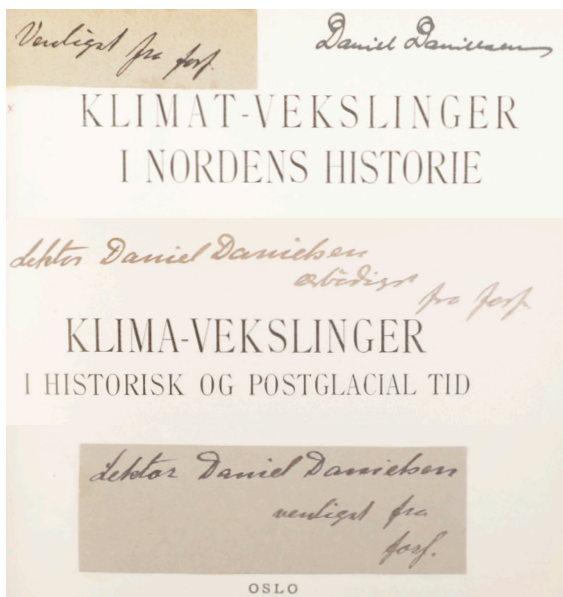 Venligst fra forf.
Daniel Danielsen
KLIMAT-VEKSLINGER
I NORDENS HISTORIE
Lektor Daniel Danielsen
ærbødigst
fra forf.
KLIMA-VEKSLINGER
I HISTORISK OG POSTGLACIAL TID
Lektor Daniel Danielsen
venligst fra
forf.
OSLO